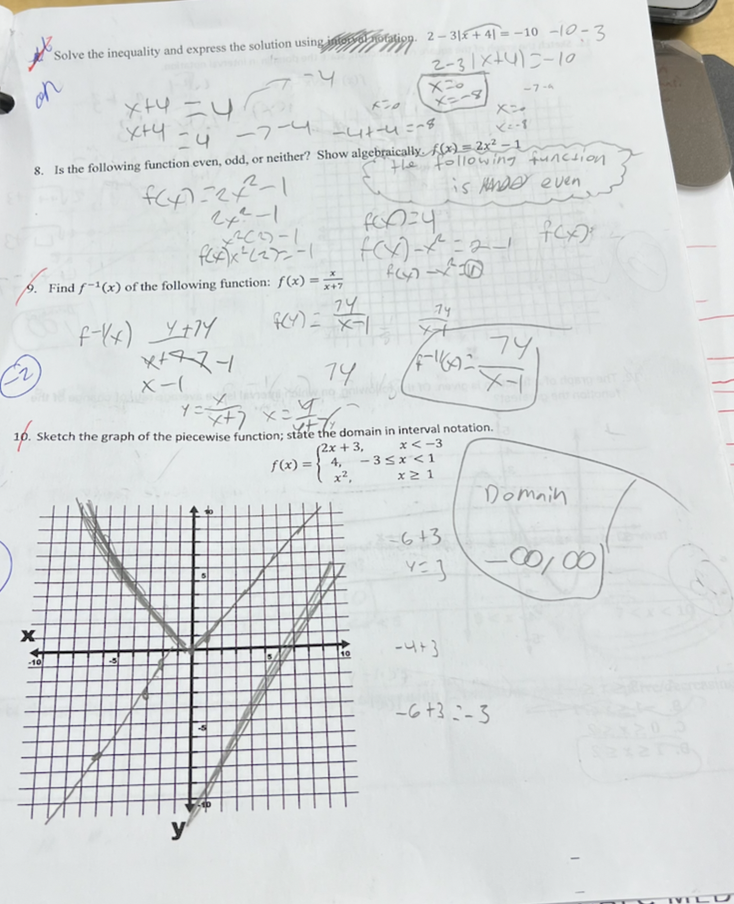 Solve the inequality and express the solution using interval notation. 2 − 3|x + 4| = −10 -10-3
2-3|x+4|=-10
ok
x+4=4 -4
x=0
x=0
x=-8
-7-4
x+4=4 -7-4 -4+-4=-8
x=0
x=-8
8. Is the following function even, odd, or neither? Show algebraically. f(x) = 2x² − 1
the following function
is even
f(x)=2x²-1
2x²-1
x²(2)-1
f(x)x²(2)=-1
f(x)=4
f(x)-x²=2-1
f(x):
f(x)-x²=
9. Find f⁻¹(x) of the following function: f(x) = x/(x+7)
f-1(x) y+7y
x+7-1
x-1
f(y)= 7y/x-1
7y
x-1
7y
f-1(x)= 7y/x-1
-2
y= x/x+7 x= y/y+7
10. Sketch the graph of the piecewise function; state the domain in interval notation.
f(x) = { 2x + 3, x < −3
4, −3 ≤ x < 1
x², x ≥ 1
Domain
-∞,∞
=6+3
y=3
-4+3
-6+3=-3
10
5
x
-10 -5 5 10
-5
-10
y